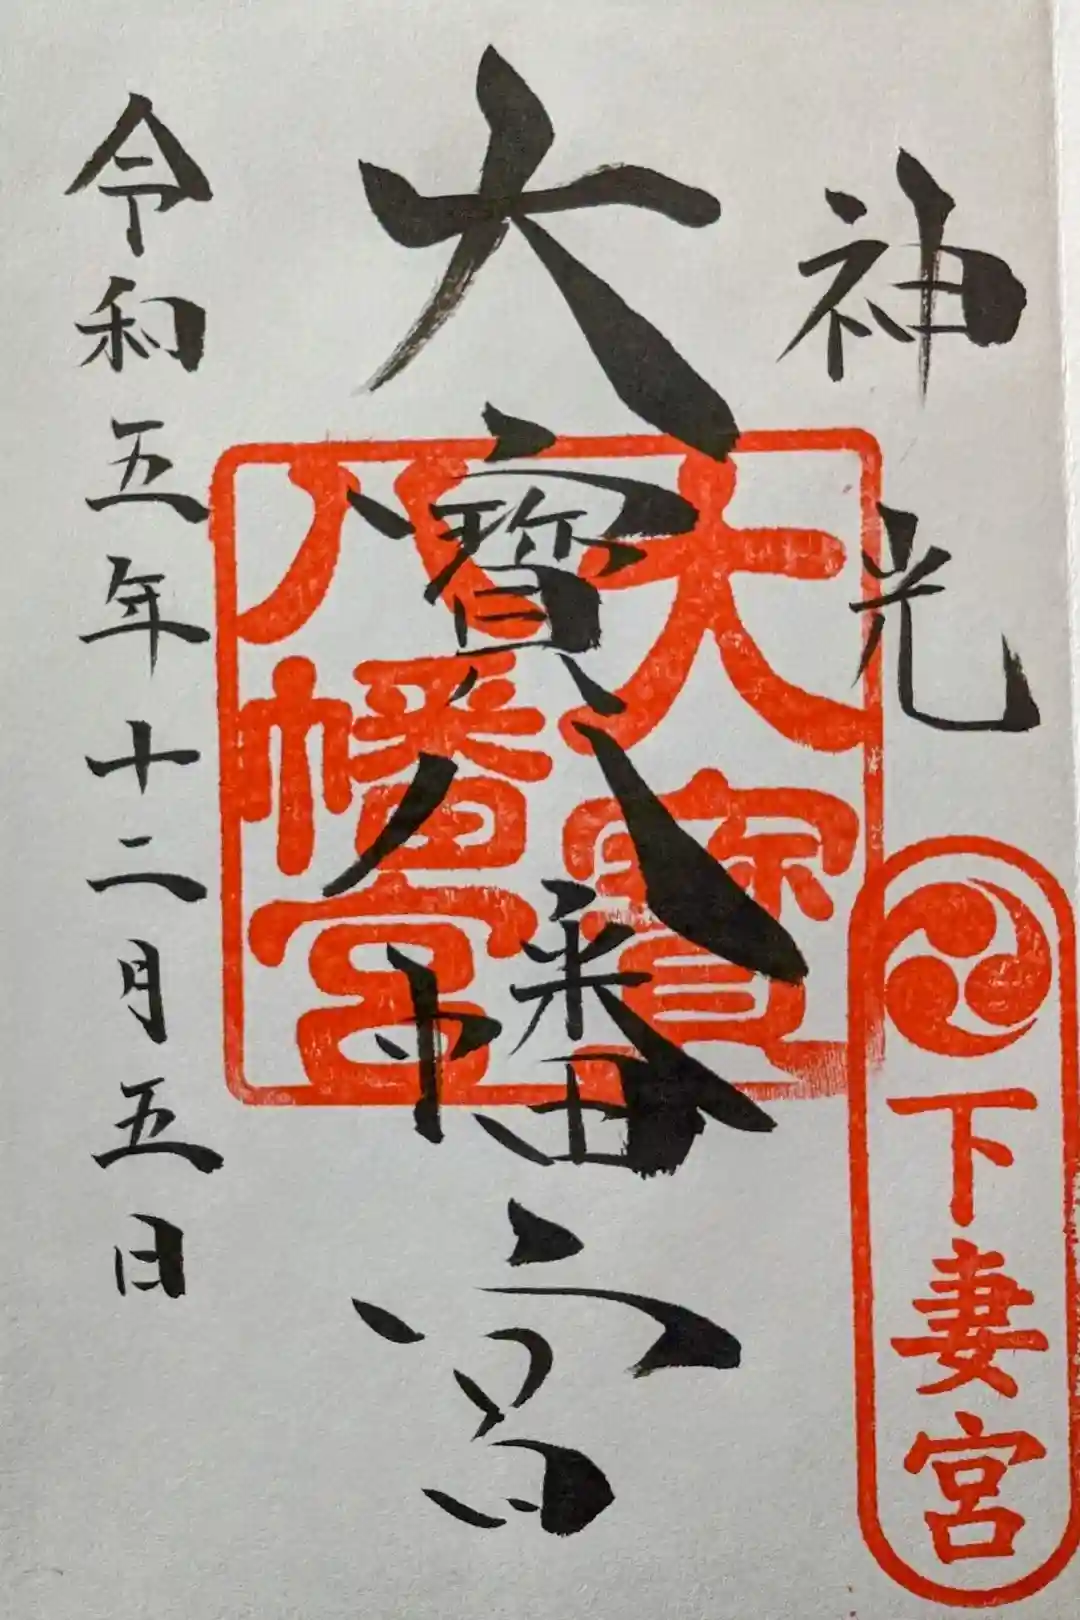 神光
下妻宮
大寳八幡宮
大寳
八幡宮
令和五年十二月五日